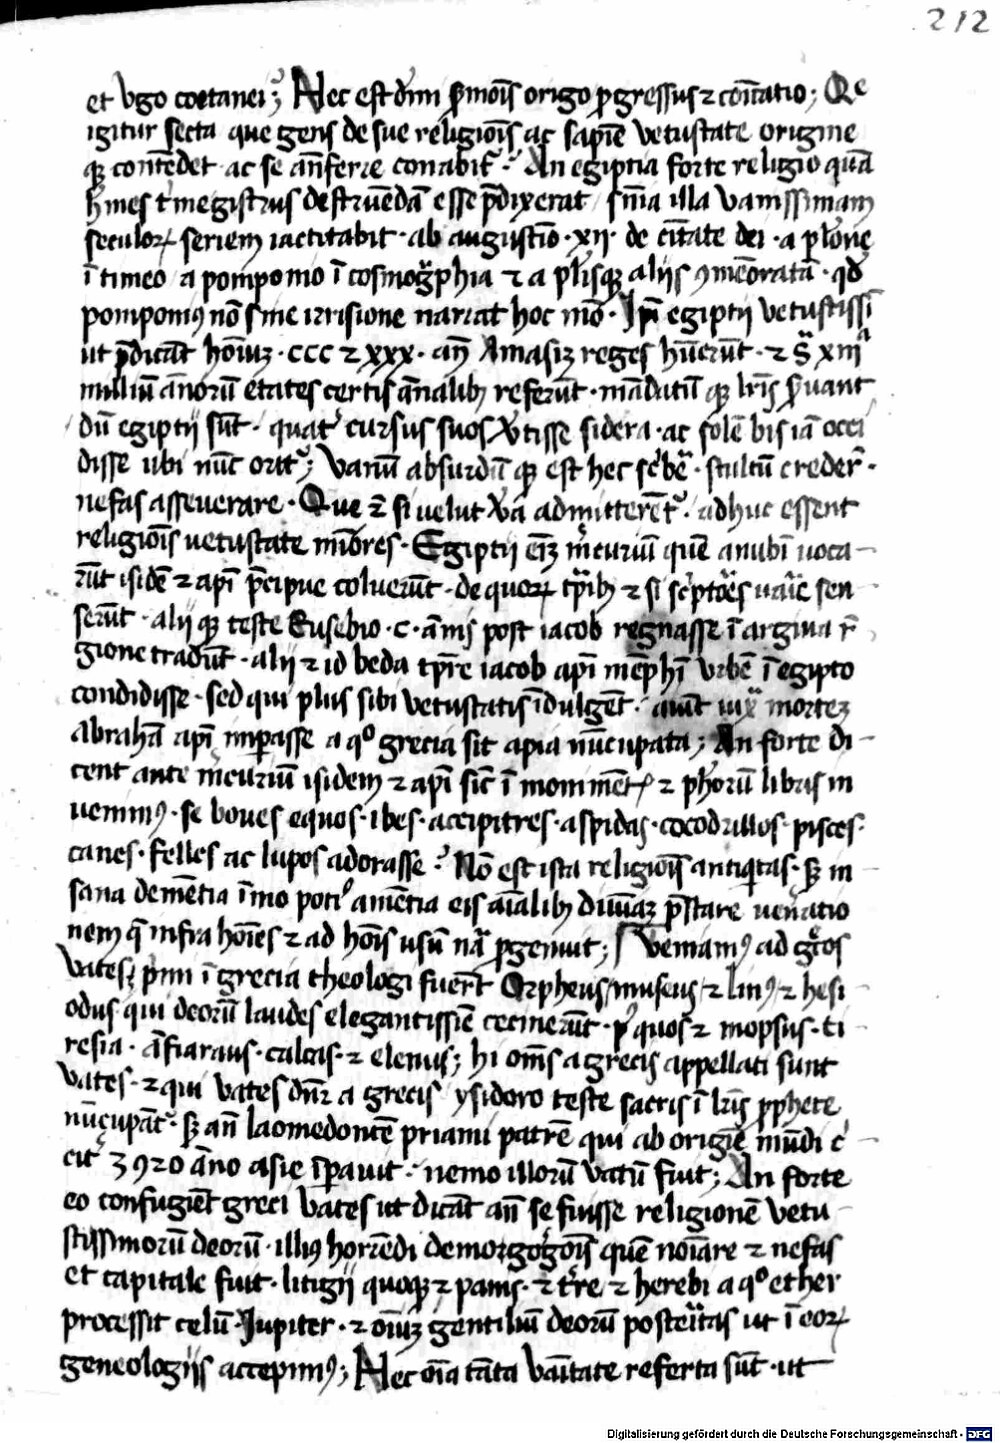 212
et vgo coetanei; Nec est dīni ꝑmōis origo ꝓgressus ⁊ cōitatio; Qe
igitur secta que gens de sue religiōis ac sapiē vetustate origine
qꝫ contēdet ac se anferre conabit An egiptia forte religio quā
hmes tmegistrus destruēdā esse pdixerat sīnia illa vanissimam
seculoꝝ seriem iactitabit · ab augustīo · xij · de cīitate dei · a platone
ī timeo a pomponio ī cosmogphia ⁊ a plisqꝫ aliis ꝯmēoratā · qd
pomponiꝰ nō sine irrisione narrat hoc mō · Ipi egiptij vetustissi
ut pdicāt hoīuꝫ · ccc ⁊ xxx · an̄ Amasiꝫ reges hūerūt · ⁊ s xiij
milliū annorū etates certis ānalibꝫ referūt · mādatū qꝫ lris ꝑuant
dū egiptij sūt · quat cursus suos vtisse sidera · ac solē bis iā occi
disse ubi nūc orit; Vanū absurdū qꝫ est hec scbe · stultū creder ·
nefas asseuerare · Que ⁊ si velut va admitterēt · adhuc essent
religiōis vetustate miōres · Egiptij eīꝫ mcuriū quē anubī uoca
rūt isidē ⁊ apī pcipue coluerūt · de quoꝝ tpibꝫ ⁊ si sc̄ptoes uaīe sen
serūt · alij qꝫ teste Eusebio · c · ānis post iacob regnasse ī argiua r
gione tradūt · alij ⁊ id beda tpre iacob apī mēphī vrbē ī egipto
condidisse · sed qui plus sibi vetustatis īdulgēt · aiūt iux morteꝫ
abrahā apī imperasse a qº grecia sit apia nūcupata; An forte di
cent ante mcuriū isidem ⁊ apī sic ī monimēt ⁊ phorū libris in
uenimꝰ · se boues equos · ibes · accipitres · aspidas · cocodrillos · pisces ·
canes · felles ac lupos adorasse Nō est ista religiōis antiqitas · sꝫ in
sana demētia īmo potiꝰ amētia eis aīalibꝫ diuinaꝫ pstare uenatio
nem q infra hoīes ⁊ ad hoīs usū na ꝓgenuit; Veniamꝰ ad gcos
Vates; pmi ī grecia theologi fuert Orpheus / museus / ⁊ linꝰ ⁊ hesi
odus qui deorū laudes elegantissīe cecinerūt · pꝰ quos ⁊ mopsus · ti
resia · āfiaraus · calcas · ⁊ elenus; hi om̄s a grecis appellati sunt
vates · ⁊ qui vates dnr a grecis ysidoro teste sacris ī lris pphete
nūcupāt · sꝫ an̄ laomedontē priami patrē qui ab origīe mūdi c
cit 3920 āno asie īpauit · nemo illorū vatū fuit; An forte
eo confugiēt greci vates ut dicāt an̄ se fuisse religionē vetu
stissimorū deorū · illiꝰ horrēdi demorgogōis quē noīare ⁊ nefas
et capitale fuit · litigij quoqꝫ ⁊ panis · ⁊ tre ⁊ herebi a qº ether
processit celū · Iupiter · ⁊ oīuꝫ gentiliū deorū posteritas ut ī eoꝝ
geneologijs accepimꝰ; Nec oīa tāta vanitate referta sūt · ut
Digitalisierung gefördert durch die Deutsche Forschungsgemeinschaft - DFG